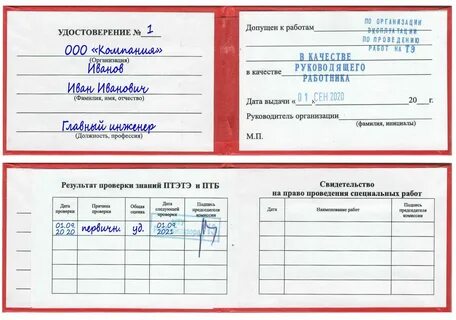 УДОСТОВЕРЕНИЕ № 1
ООО «Компания»
(Организация)
Иванов
Иван Иванович
(Фамилия, имя, отчество)
Главный инженер
(Должность, профессия)
Допущен к работам
ПО ОРГАНИЗАЦИИ
ЭКСПЛОАТАЦИИ
ПО ПРОВЕДЕНИЮ
РАБОТ НА ТЭ
в качестве
В КАЧЕСТВЕ
РУКОВОДЯЩЕГО
РАБОТНИКА
Дата выдачи «01 СЕН 2020 20 г.
Руководитель организации
(фамилия, инициалы)
М.П.
Результат проверки знаний ПТЭТЭ и ПТБ
Дата проверки
Причина проверки
Общая оценка
Дата следующей проверки
Подпись председателя комиссии
01.09. 2020
первичн.
уд.
01.09. 2021
Свидетельство
на право проведения специальных работ
Дата
Наименование работ
Подпись председателя комиссии